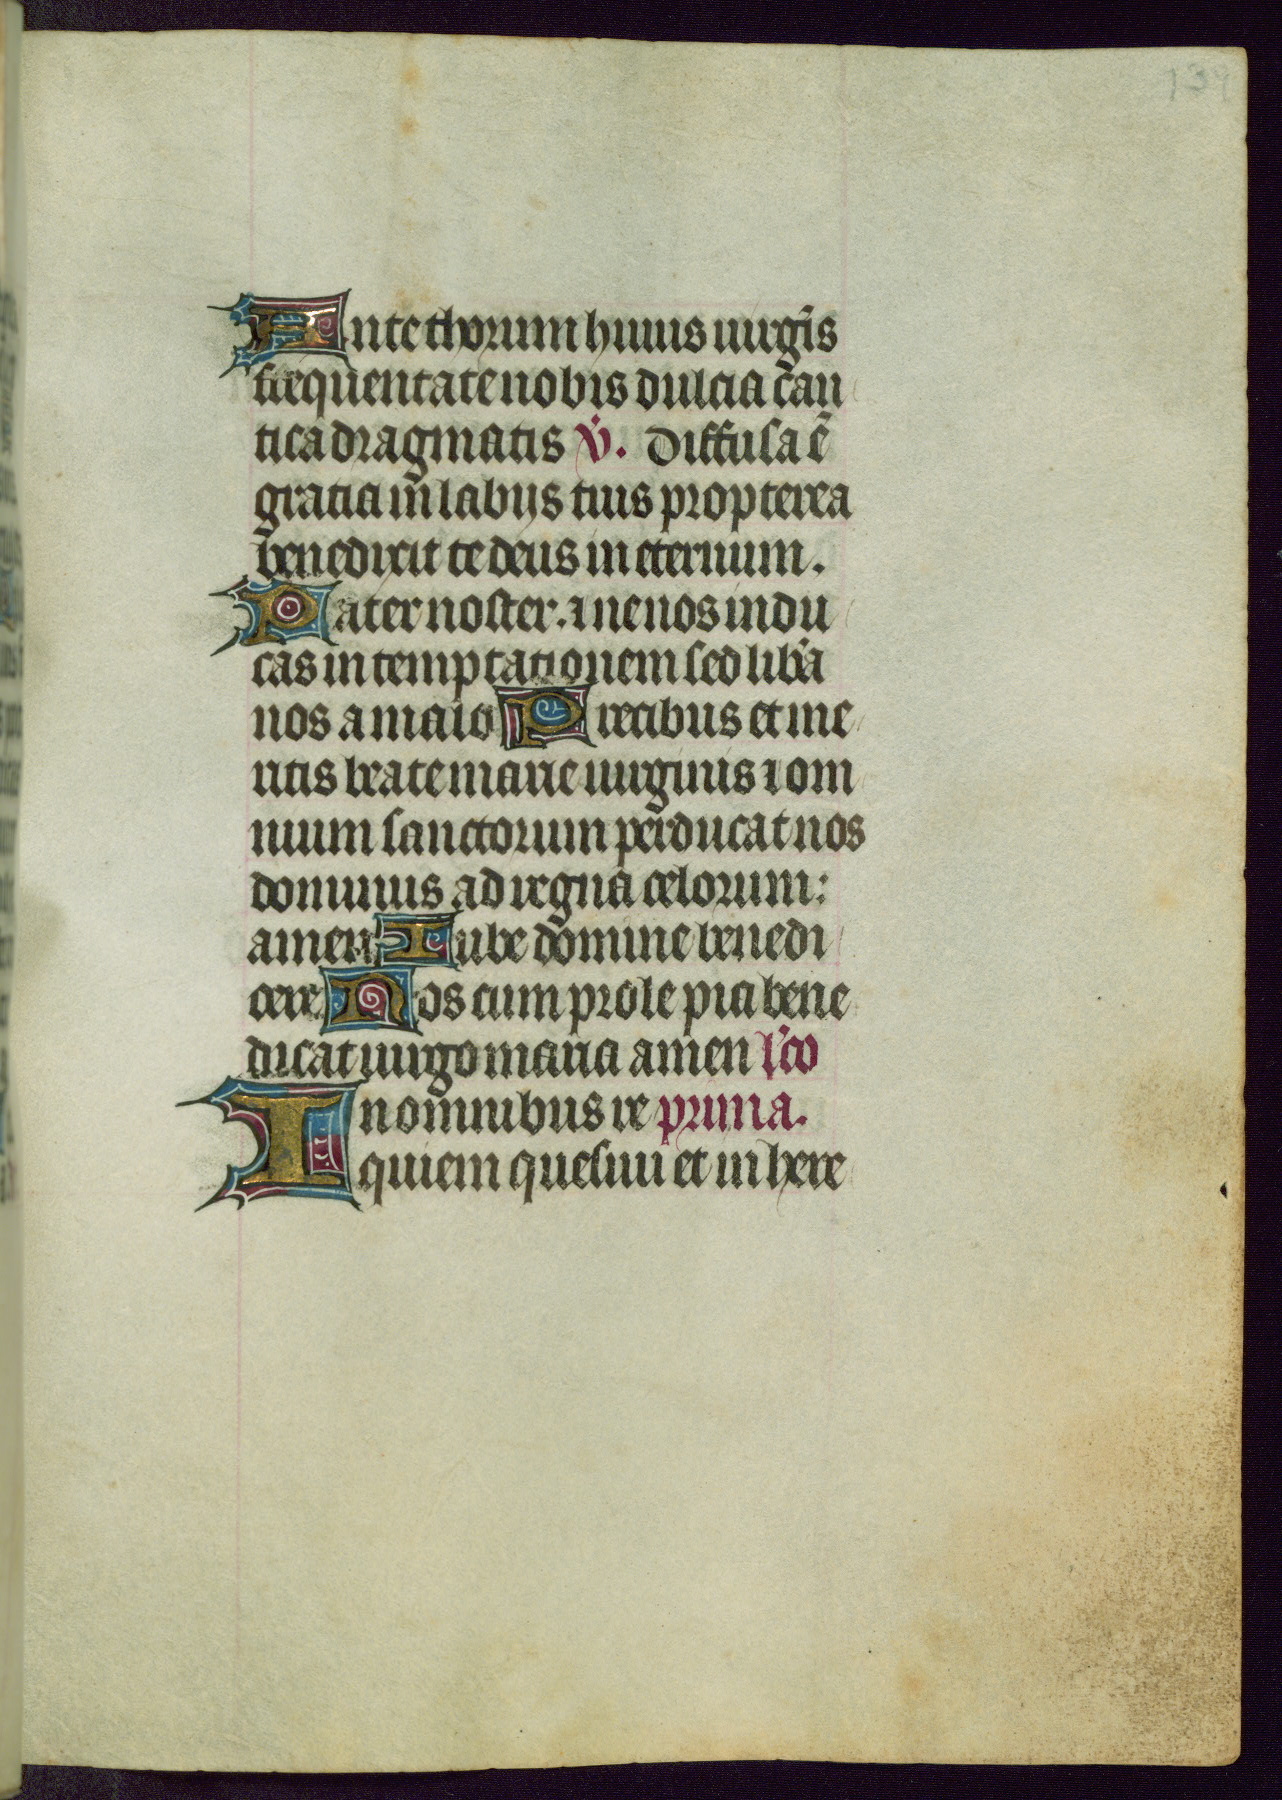 139
Ante thorum huius uirgīs
frequentate nobis dulcia can
tica dragmatis v̇. Diffusa ē
gratia in labijs tuis propterea
benedixit te deus in eternum.
Pater noster. ⁊ ne nos indu
cas in temptationem sed lib'a
nos a malo Precibus et me
ritis beate marie uirginis ⁊ om
nium sanctorum perducat nos
dominus ad regna celorum:
amen Iube domine benedi
cere Nos cum prole pia bene
dicat uirgo maria amen l'co
In omnibus re prima.
quiem quesiui et in here